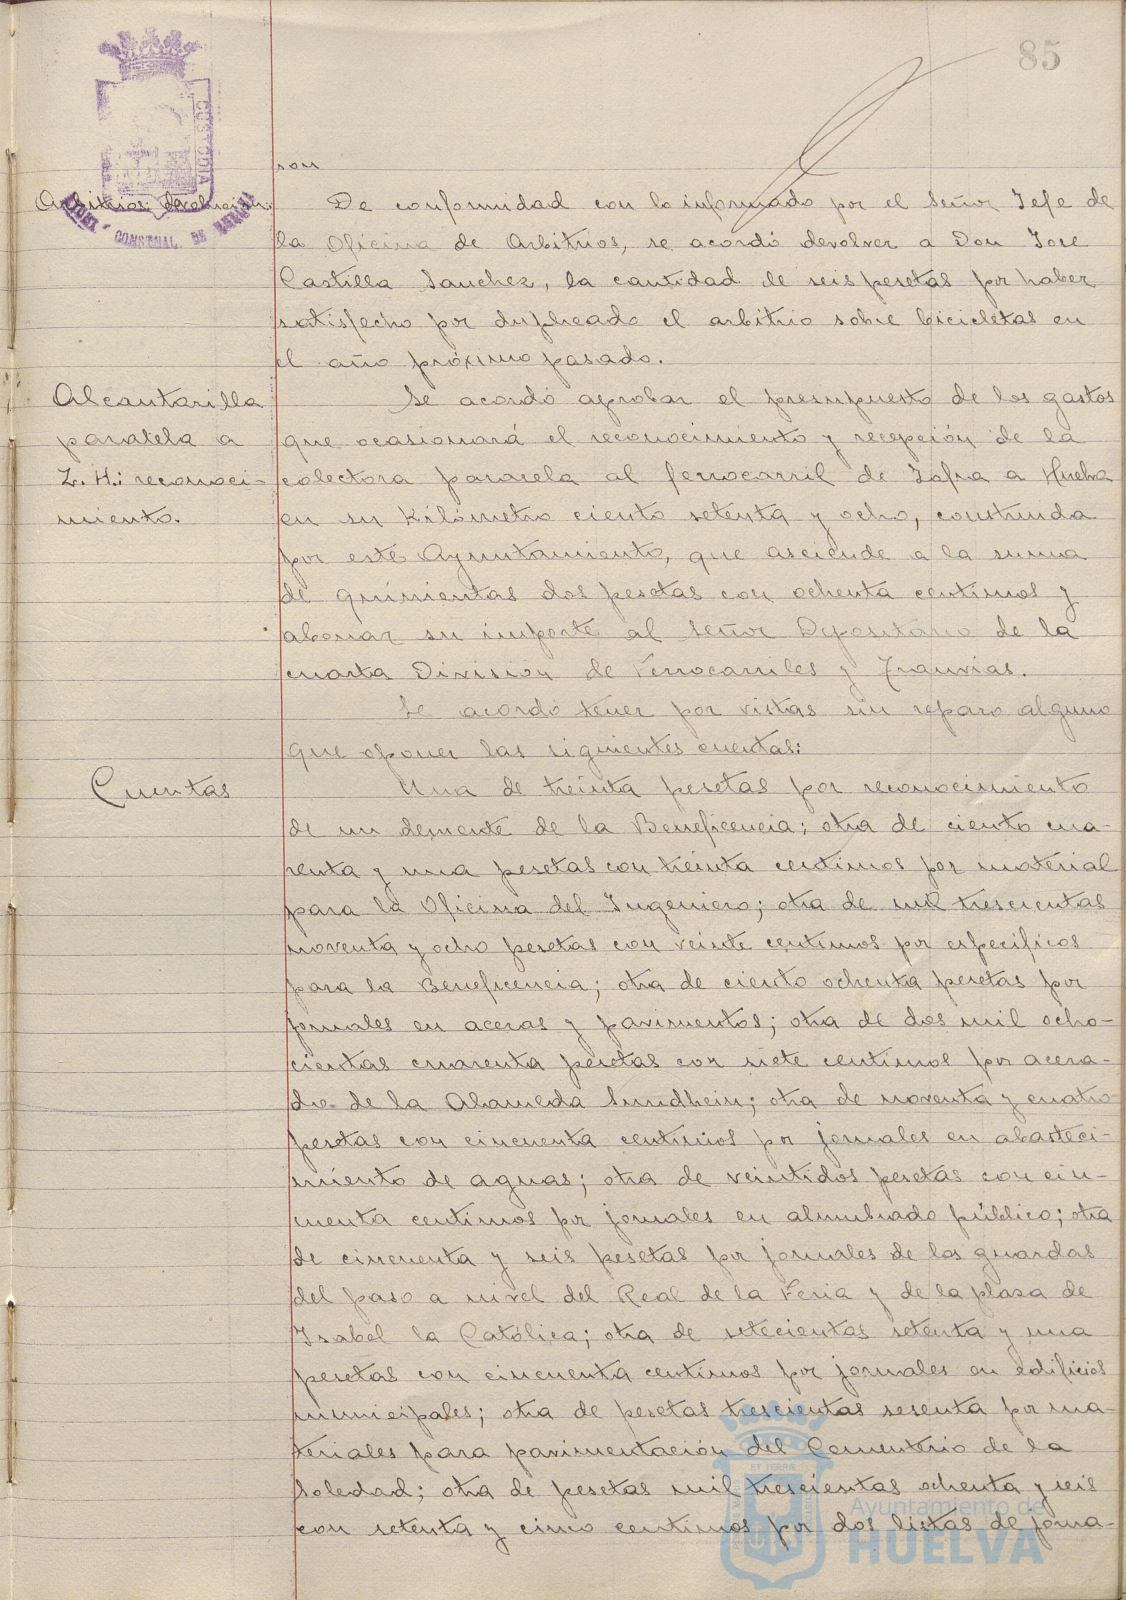 85
CUSTODIA
CONSTAL. DE
ron
Arbitrios: devolución.
De conformidad con lo informado por el Señor Jefe de
la Oficina de Arbitrios, se acordó devolver a Don José
Castilla Sanchez, la cantidad de seis pesetas por haber
satisfecho por duplicado el arbitrio sobre bicicletas en
el año próximo pasado.
Alcantarilla
paralela a
Z. H.: reconoci-
miento.
Se acordó aprobar el presupuesto de los gastos
que ocasionará el reconocimiento y recepción de la
colectora paralela al ferrocarril de Zafra a Huelva
en su Kilómetro ciento setenta y ocho, construida
por este Ayuntamiento, que asciende a la suma
de quinientas dos pesetas con ochenta centimos y
abonar su importe al Señor Depositario de la
cuarta Division de Ferrocarriles y Tranvias.
Se acordó tener por vistas sin reparo alguno
que oponer las siguientes cuentas:
Cuentas
Una de treinta pesetas por reconocimiento
de un demente de la Beneficencia; otra de ciento cua-
renta y una pesetas con treinta centimos por material
para la Oficina del Ingeniero; otra de mil trescientas
noventa y ocho pesetas con veinte centimos por especificos
para la Beneficencia; otra de ciento ochenta pesetas por
jornales en aceras y pavimentos; otra de dos mil ocho-
cientas cuarenta pesetas con siete centimos por acera-
do de la Alameda Sundhein; otra de noventa y cuatro
pesetas con cincuenta centimos por jornales en abasteci-
miento de aguas; otra de veintidos pesetas con cin-
cuenta centimos por jornales en alumbrado público; otra
de cincuenta y seis pesetas por jornales de los guardas
del paso a nivel del Real de la Feria y de la plaza de
Isabel la Católica; otra de setecientas setenta y una
pesetas con cincuenta centimos por jornales en edificios
municipales; otra de pesetas trescientas sesenta por ma-
teriales para pavimentación del Cementerio de la
Soledad; otra de pesetas mil trescientas ochenta y seis
con setenta y cinco centimos por dos listas de jorna-
Ayuntamiento de
HUELVA